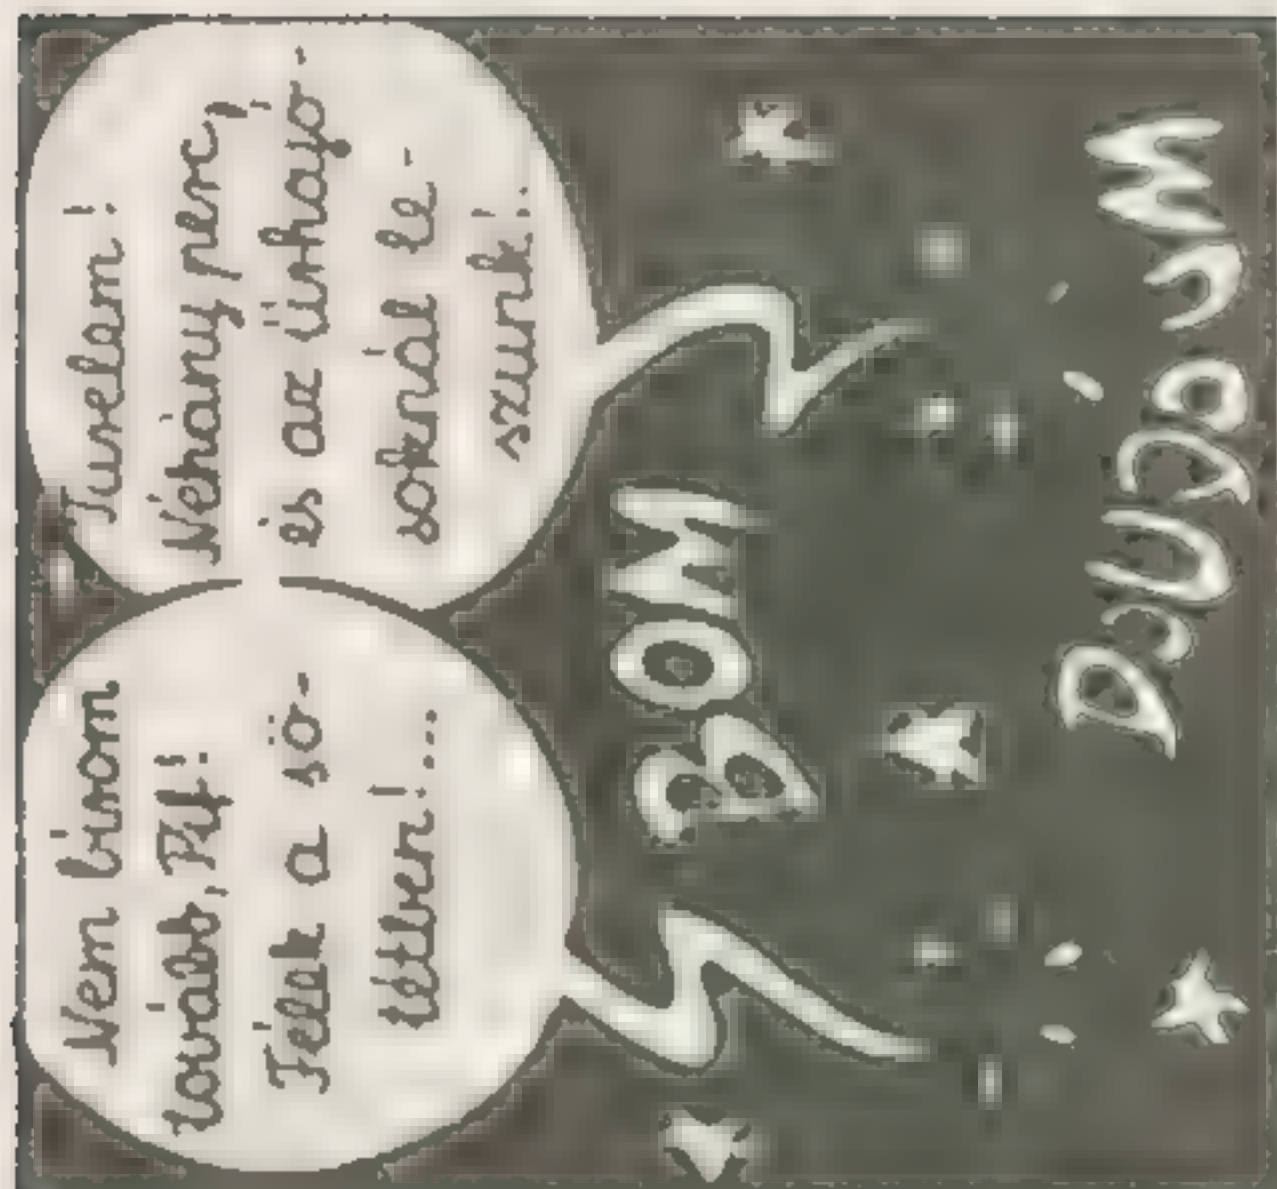 Nem bírom
tovább, Pif!
Félek a sö-
tétben!...
Türelem!
Néhány perc,
és az űrhajó-
soknál le-
szünk!
BOM